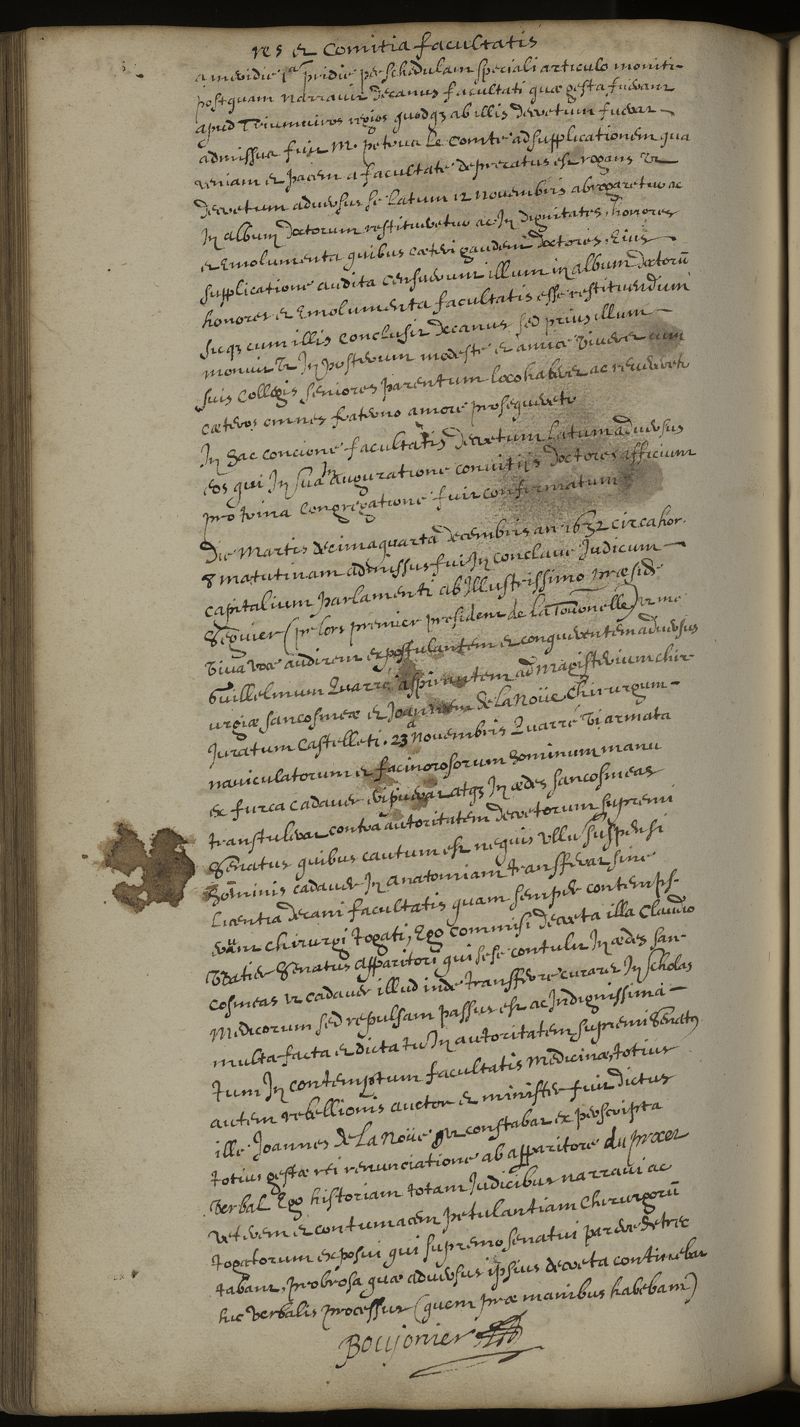 res et Comitia facultatis
a meridie 1ª pridie per schedulam speciali articulo moniti
postquam narravit decanus facultati quæ gesta fuerant
apud Triumviros regios quodqz ab illis decretum fuerat
admissus fuit M. petrus Le Comte ad supplicationem qua
veniam et pacem a facultate deprecatus est rogans ut
decretum adversus se latum 12 novembris abrogaretur ac
In album doctorum restitueretur ac In dignitates, honores
et Emolumenta quibus cæteri gaudent doctores. Eius
supplicatione audita censuerunt illum in album doctorū
honores et Emolumenta facultatis esse restituendum
sicqz cum illis conclusit decanus sed prius illum
monuit ut In posterum modeste et amice viveret cum
suis Collegis seniores parentum loco haberet ac revereretur
cæteros omnes fraterno amore prosequeretur
In hac concione facultatis decretum latum adversus
eos qui In sua Inauguratione convitiis doctores afficiunt
pro trina Congregatione fuit confirmatum
Die Martis decimaquarta decembris an 1632 circa hor.
8 matutinam admissus fui In conclave Judicum
capitalium parlamenti ab Illustrissimo præside
Seguier (pr lors premier president de la Tournelle) ut me
viva voce audirent expostulantem et conquerentem adversus
Guillelmum Quarré aspirantem ad Magisterium chir-
urgiæ sancosmeæ et Joannem de la Noüe Chirurgum
Juratum Castelleti. 23ª Novembris Quarré vi armata
naviculatorum et facinorosorum hominum manu
ex furca cadaver eripuerat atqz In ædes sancosmeas
transtulerat contra autoritatem decretorum supremi
Senatus quibus cautum est nequis ullu suspensi
hominis cadaver In anatomiam transferat sine
licentia decani facultatis quam semper contemps-
erunt chirurgi togati, Ego commisi decreta illa Claudio
Vratier Senatus apparitori qui sese contulit In ædes san-
cosmeas ut cadaver illud inde transferre curaret In scholas
Medicorum sed repulsam passus est ac Indignissima
multa facta et dicta tu In autoritatem supremi Senatus
tum In contemptum facultatis Medicinæ, totius
autem rebellionis auctor et minister fuit dictus
ille Joannes de la Noüe ut constabat ex perscripta
totius gestæ rei renunciatione ab apparitore du procez
verbal Ego historiam totam Judicibus narravi ac
veterem et contumacem petulantiam Chirurgorū
togatorum exposui qui supremo senatui parere detrec
tabant, probrosa quæ adversus ipsius decreta continebat
hic verbalis processus (quem præ manibus habebam)
Boujonier